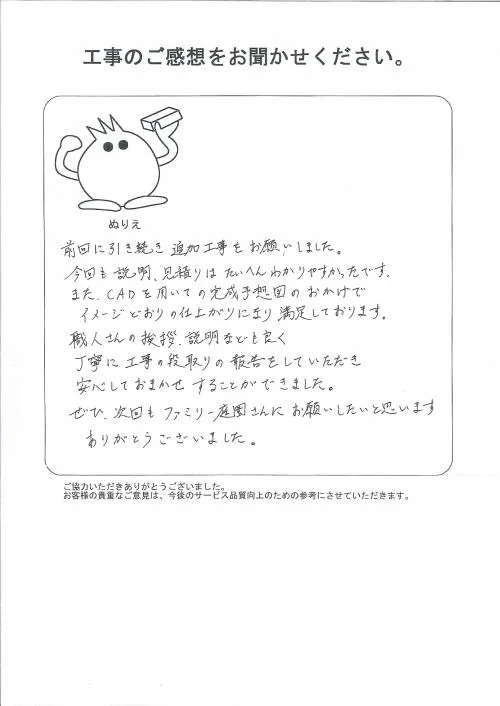 工事のご感想をお聞かせください。
ぬりえ
前回に引き続き 追加工事をお願いしました。
今回も説明、見積りはたいへんわかりやすかったです。
また、CADを用いての完成予想図のおかげで
イメージどおりの仕上がりになり満足しております。
職人さんの挨拶、説明なども良く
丁寧に工事の段取りの報告をしていただき
安心しておまかせすることができました。
ぜひ、次回もファミリー庭園さんにお願いしたいと思います
ありがとうございました。
ご協力いただきありがとうございました。
お客様の貴重なご意見は、今後のサービス品質向上のための参考にさせていただきます。